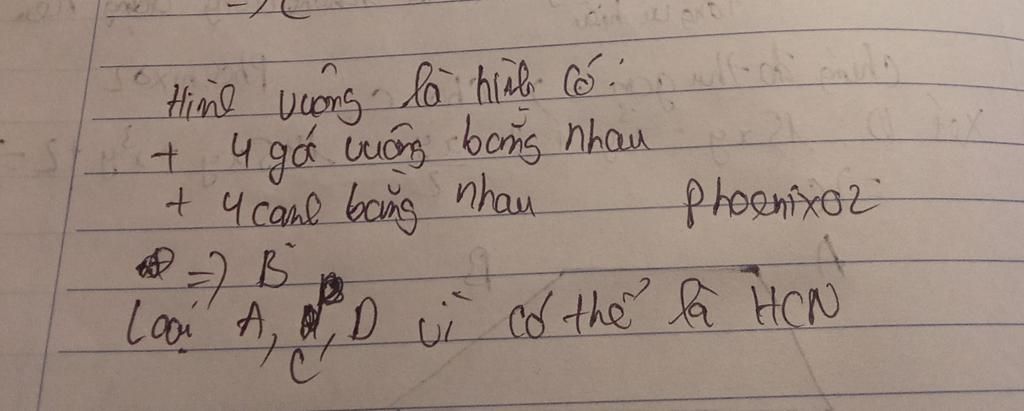 => C
Hình vuông là hình có:
+ 4 góc vuông bằng nhau
+ 4 cạnh bằng nhau phoenixo2
=> B
Loại A, C, D vì có thể là HCN